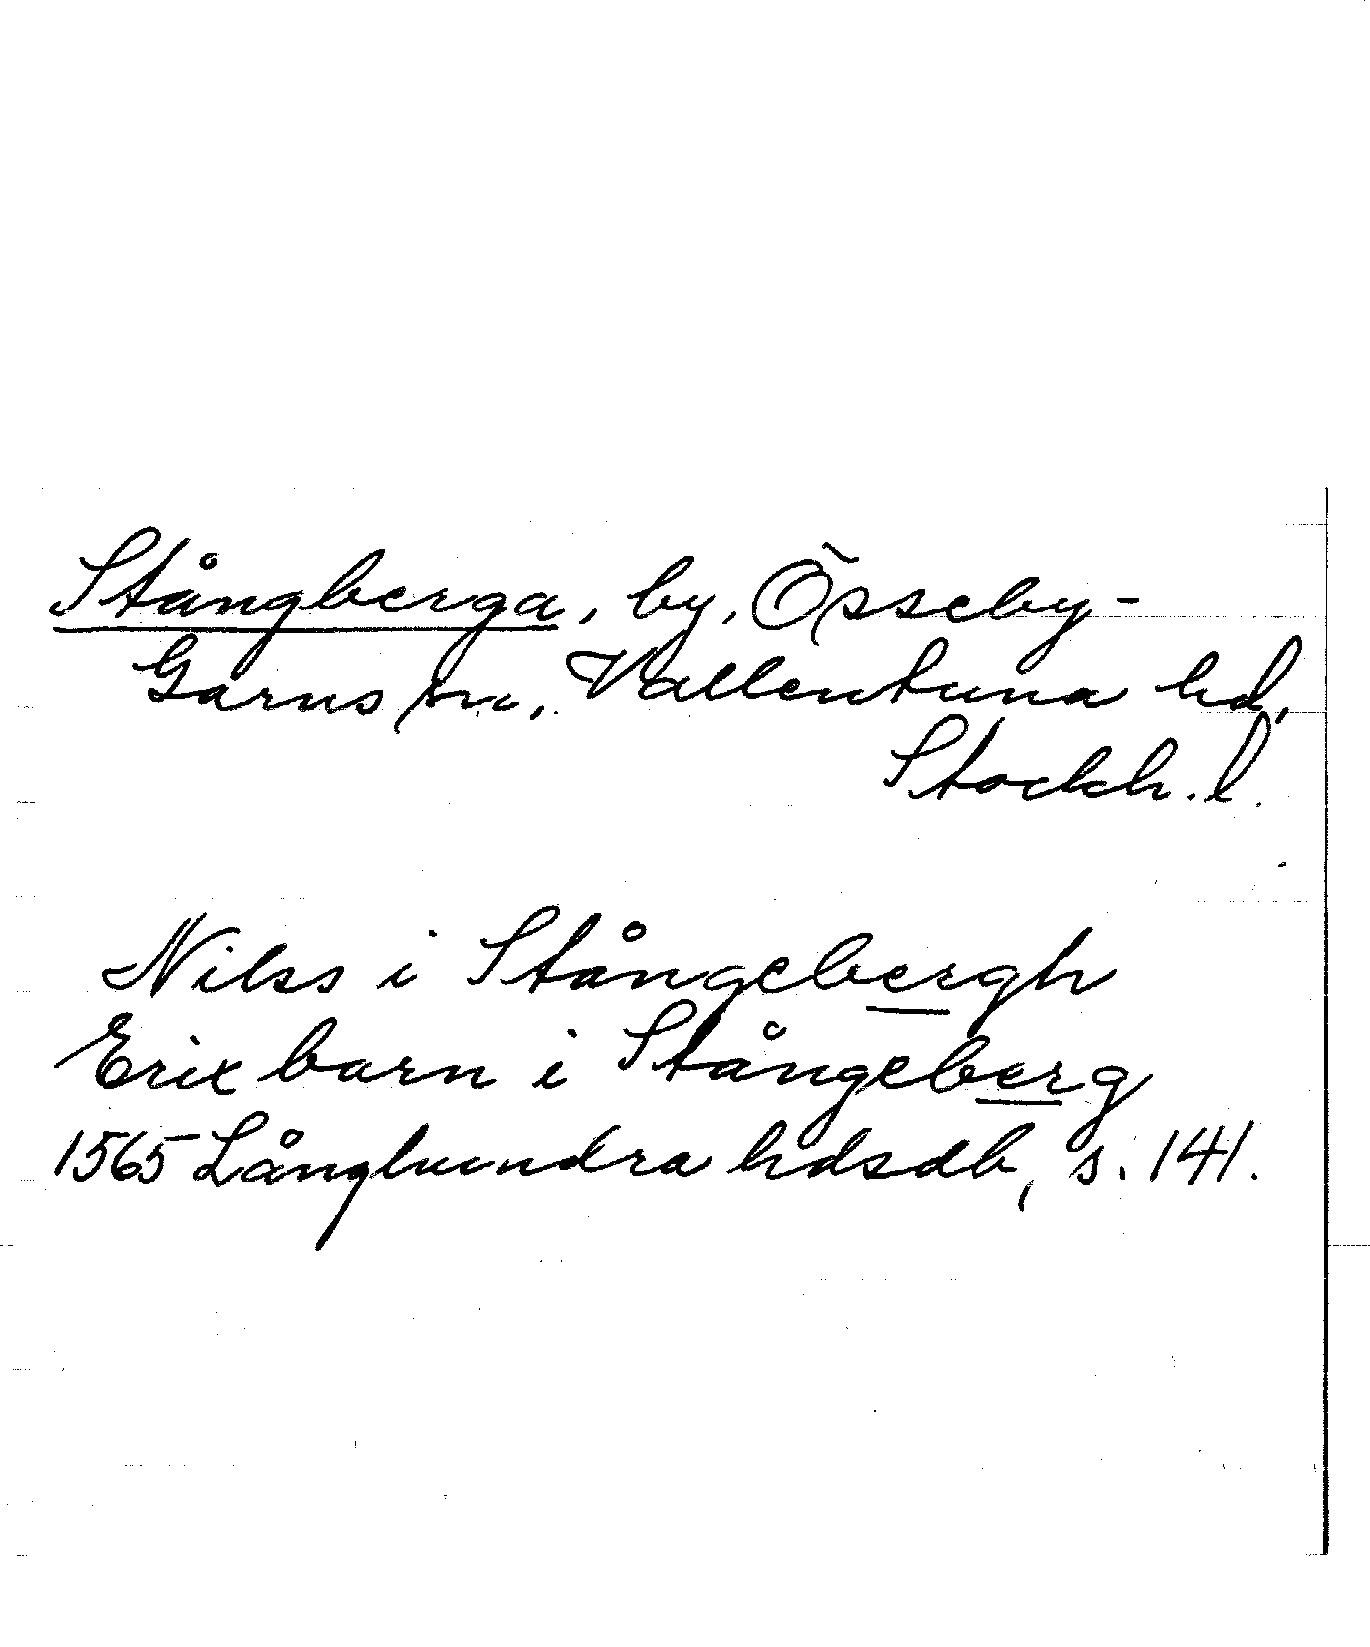 Stångberga, by, Össeby-
Garns sn, Vallentuna hd,
Stockh. l.
Nilss i Stångebergh
Erix barn i Stångeberg
1565 Långhundra hdsdb, s. 141.